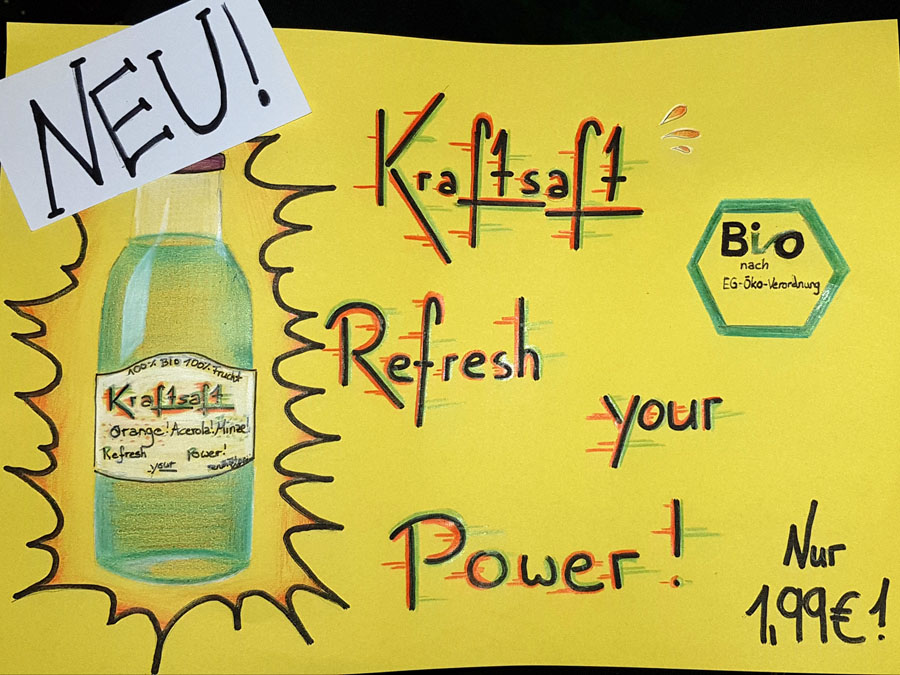 NEU!
Kraftsaft
Bio
nach
EG-Öko-Verordnung
Refresh
your
Power!
100% Bio 100% Frucht
Kraftsaft
Orange! Acerola! Minze!
Refresh Power!
your
Nur
1,99€!